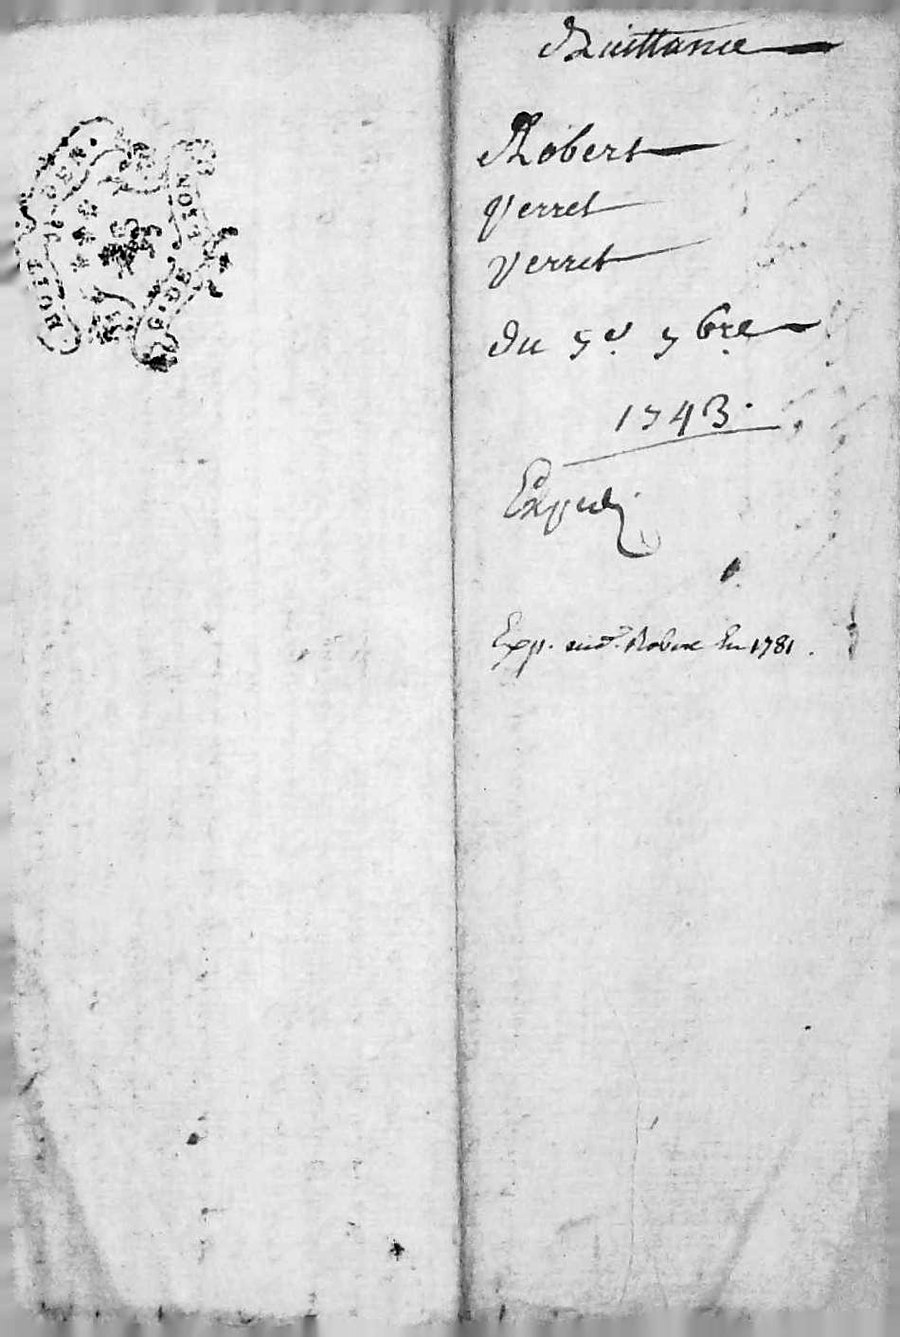 HUIT DEN.
G. DE LION
Quittance
Robert
Verret
Verret
Du 5e. 7bre.
1743.
Expedi
Exp. aud. Robert En 1781.